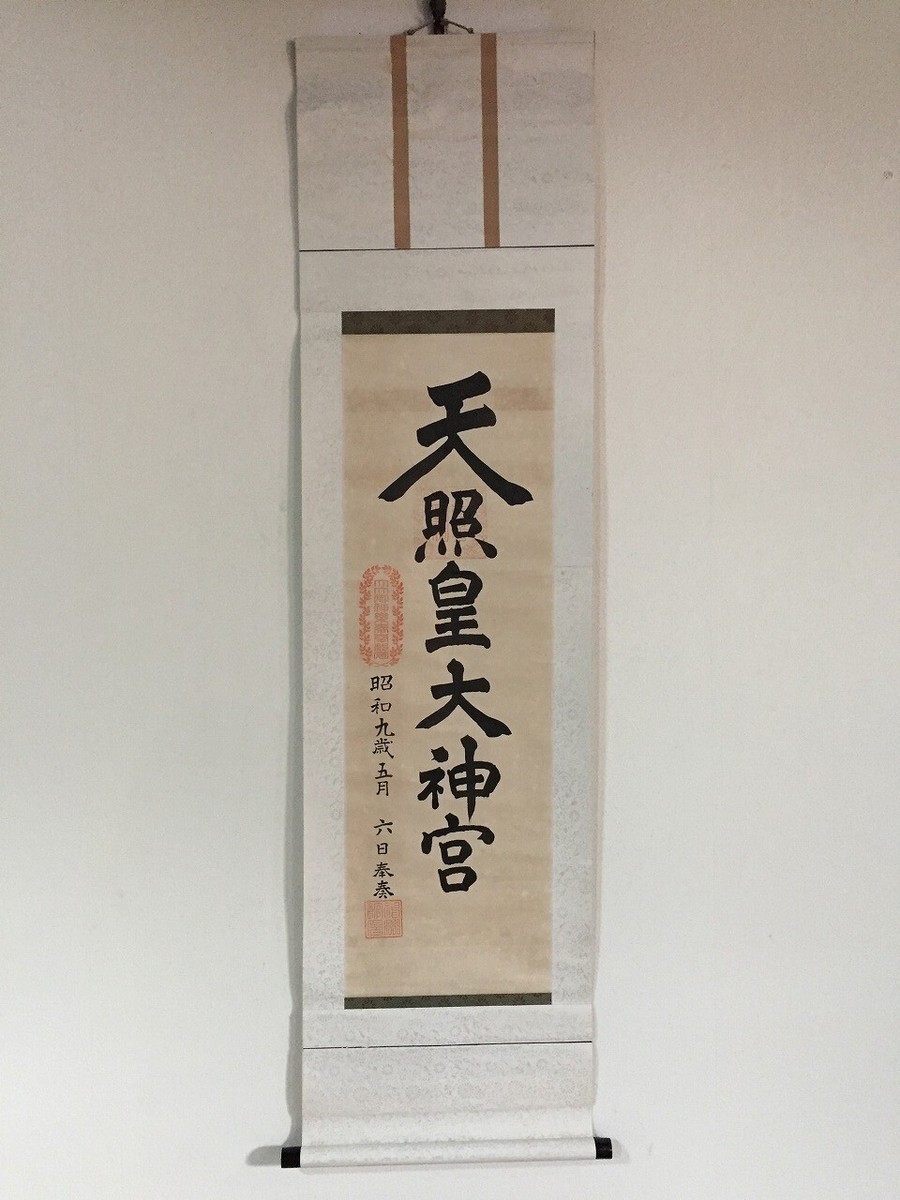 天照皇大神宮
昭和九歳五月 六日奉奏